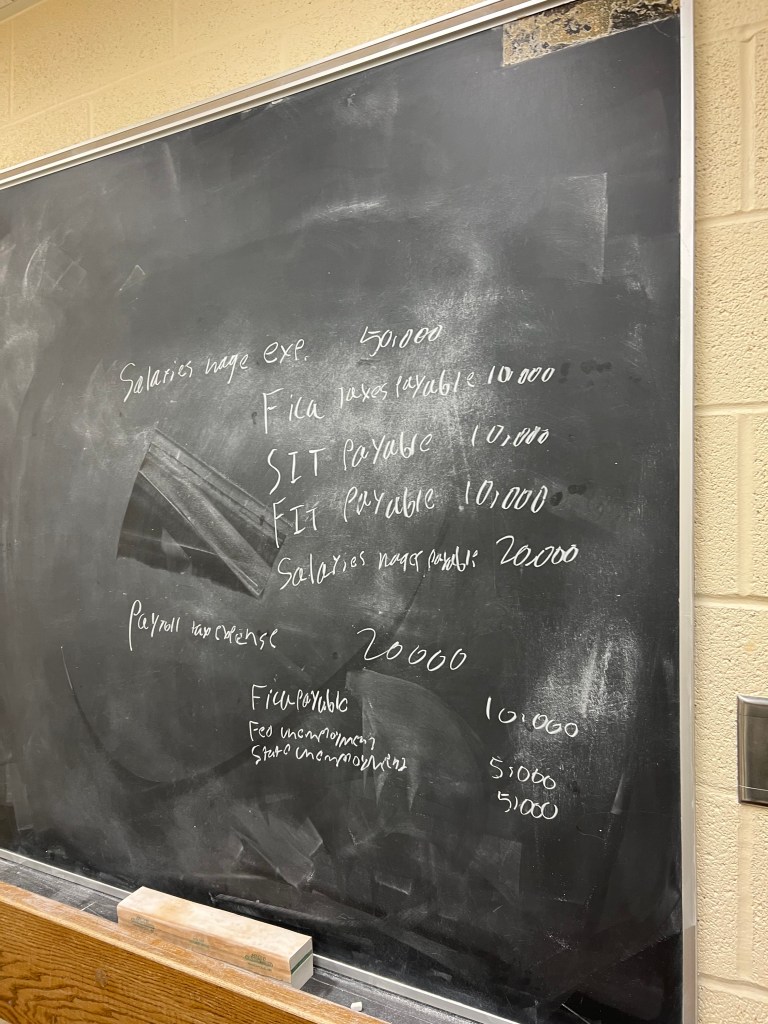 Salaries wage exp. 50,000
Fica taxes payable 10000
SIT payable 10,000
FIT payable 10,000
Salaries wages payable 20,000
Payroll tax expense 20000
Fica payable 10,000
Fed unemployment 5,000
State unemployment 5,000